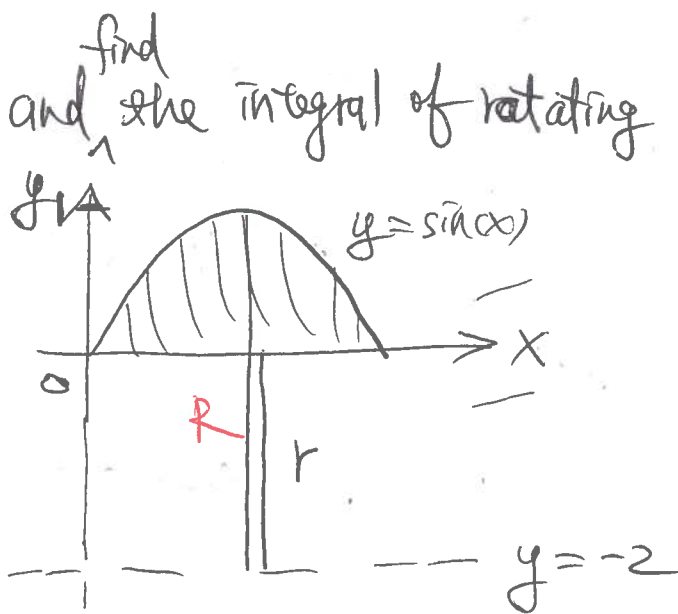 find
and ^ the integral of rotating
y
y = sin(x)
x
0
R
r
y = -2